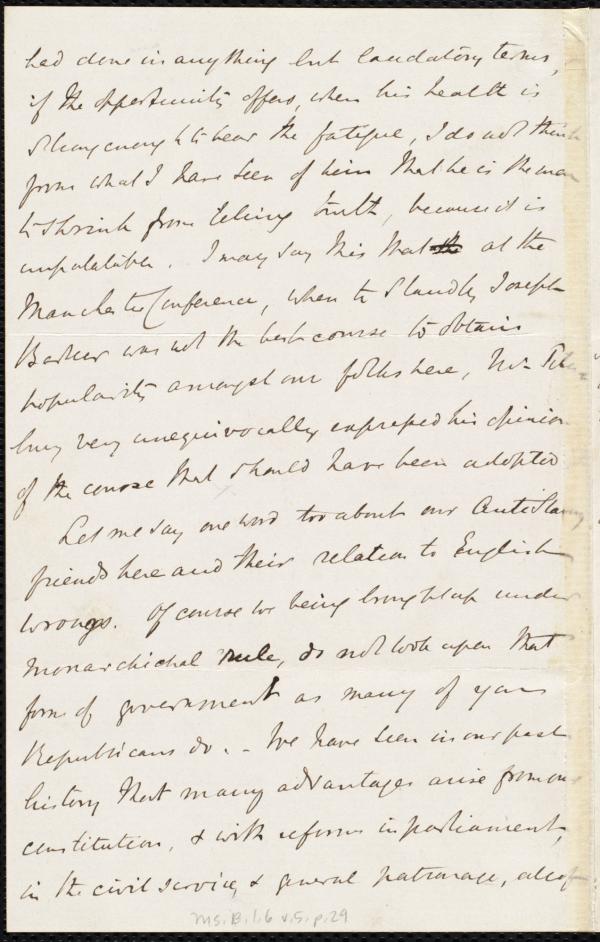 had done in anything but laudatory terms,
if the opportunity offers, when his health is
strong enough to bear the fatigue, I do not think
from what I have seen of him that he is the man
to shrink from telling truth, because it is
unpalatable. I may say this that at the
Manchester Conference, when to stand by Joseph
Barker was not the best course to obtain
popularity amongst our folks here, Mr
bury very unequivocally expressed his opinion
of the course that should have been adopted
Let me say one word too about our AntiSlavery
friends here and their relation to English
wrongs. Of course we being brought up under
monarchichal rule, do not look upon that
form of government as many of your
Republicans do. - We have seen in our past
history that many advantages arise from our
constitution, & with reforms in parliament,
in the civil service, & general patronage, also
Ms. B. 1. 6 v. 5. p. 29